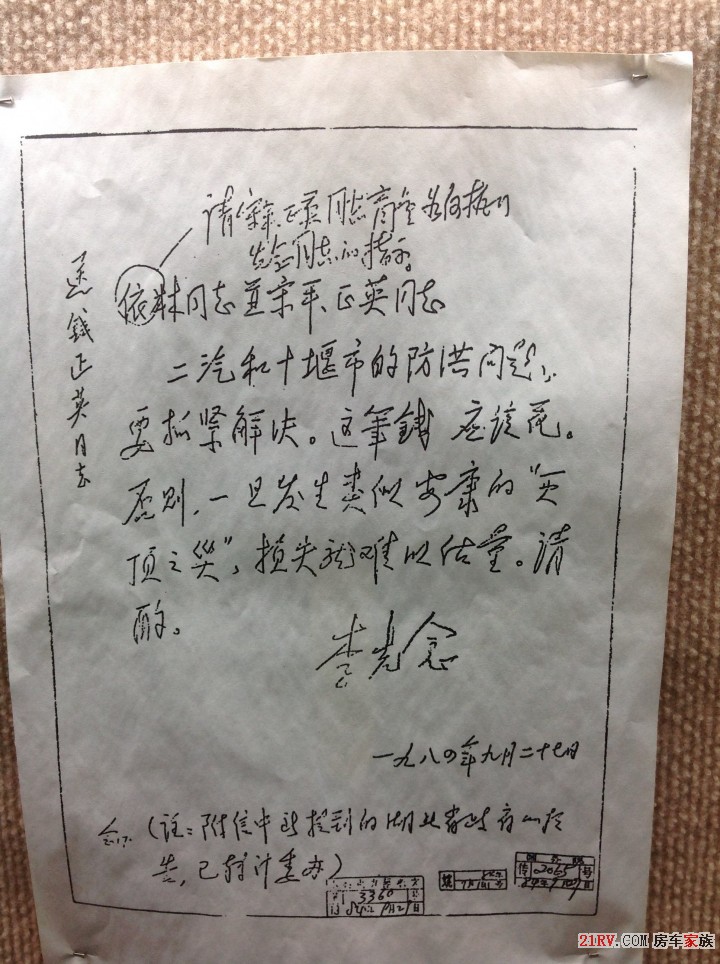 请宋平、正英同志商量如何执行
先念同志的指示。
送钱正英同志
依林同志并宋平、正英同志
二汽和十堰市的防洪问题,
要抓紧解决。这笔钱应该花。
否则,一旦发生类似安康的“灭
顶之灾”,损失就难以估量。请
酌。
李先念
一九八四年九月二十七日
(注:附信中所提到的湖北省政府的报
告,已转计委办)
3360
2065
21RV.COM 房车家族